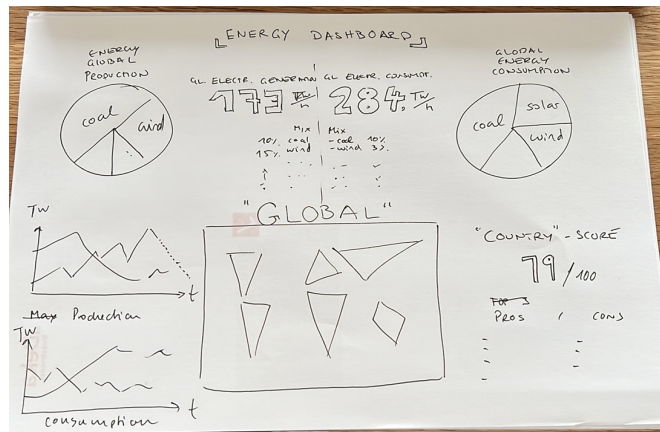 ENERGY DASHBOARD
ENERGY
GLOBAL
PRODUCTION
coal
wind
GL. ELECTR. GENERATION
173 TW/h
GL. ELECTR. CONSUMPT.
284. TW/h
Mix
10% coal
15% wind
Mix
- coal 10%
- wind 3%
GLOBAL
ENERGY
CONSUMPTION
coal
solar
wind
TW
t
Max Production
TW
t
consumption
"GLOBAL"
"COUNTRY" - SCORE
79/100
TOP 3
PROS / CONS